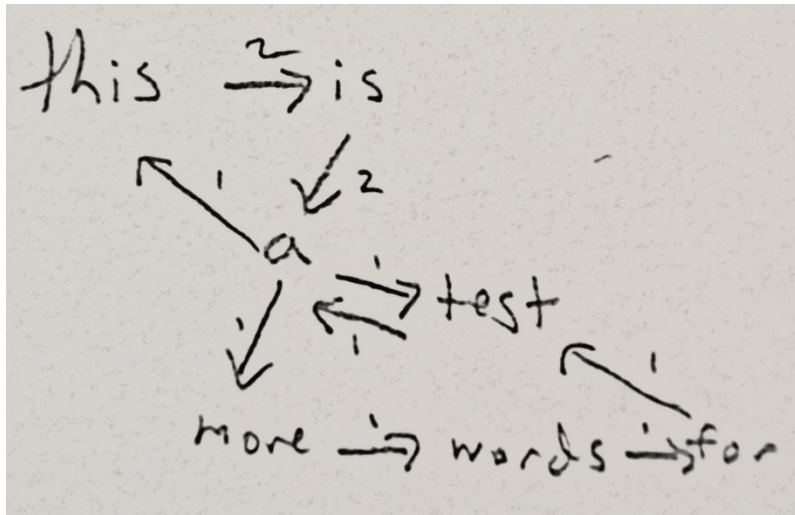 this 2 is
1 2
a
1 test
1 1 1
more 1 words 1 for